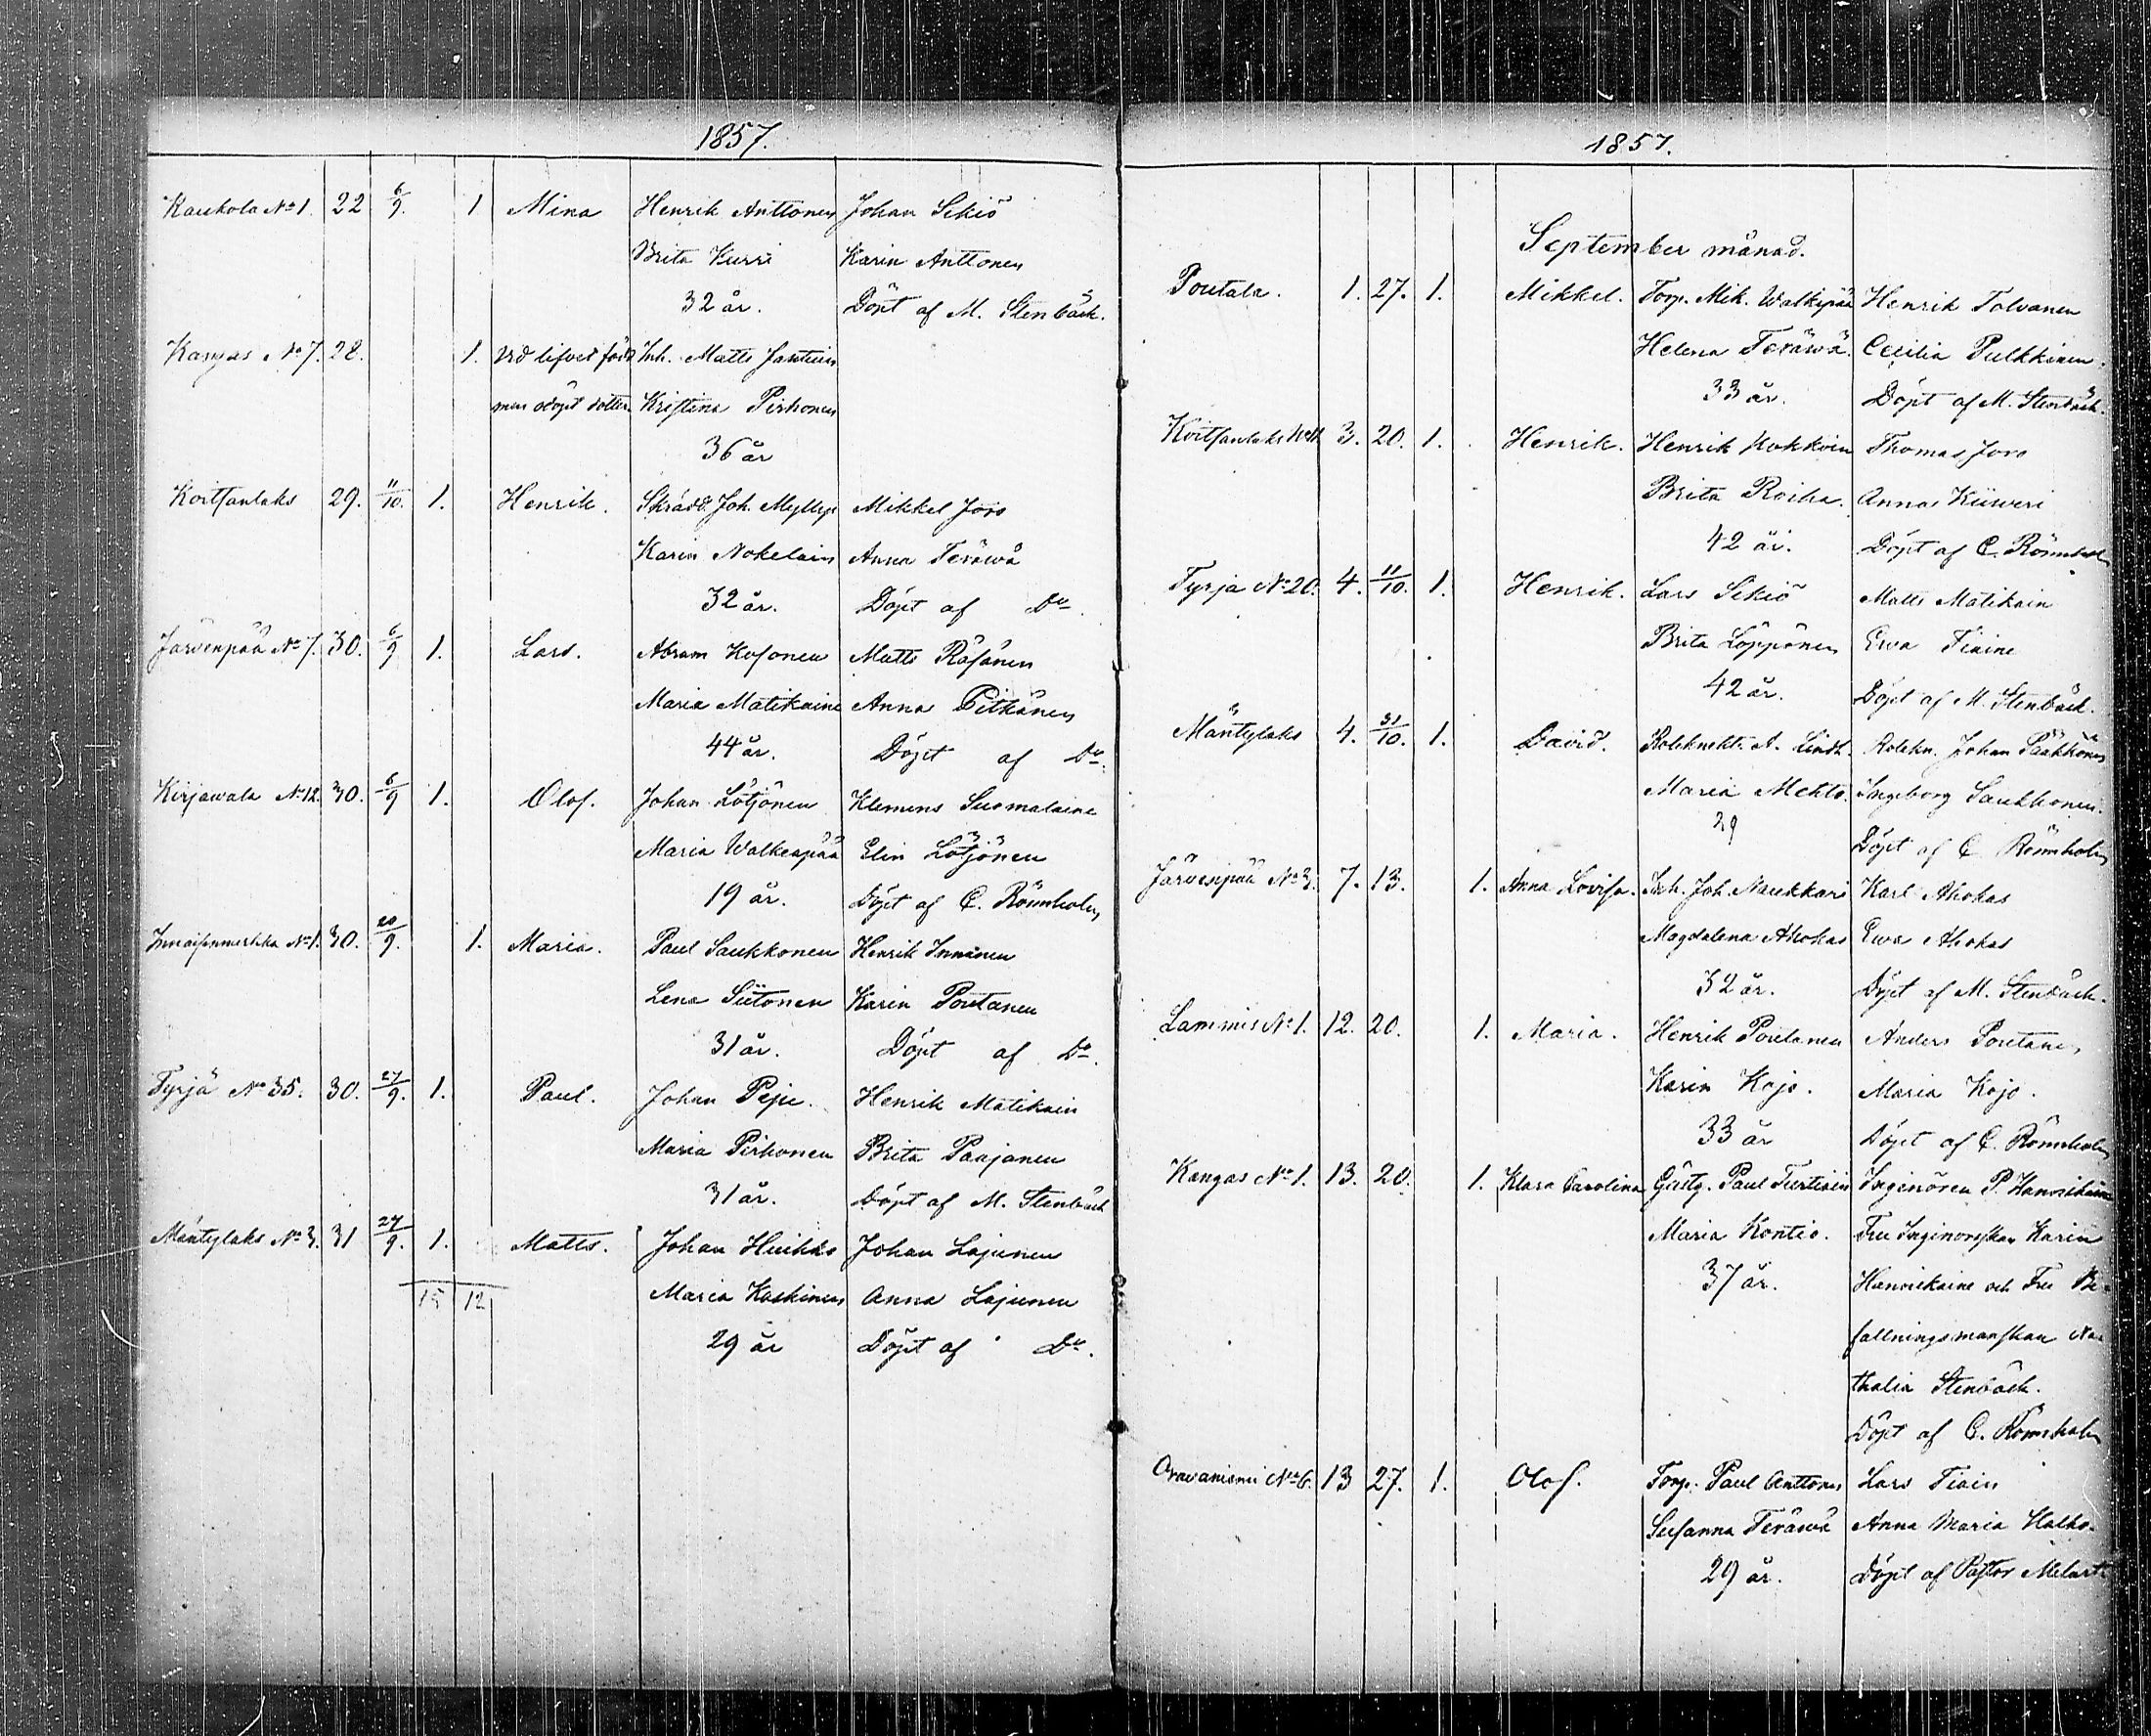 1857.
Kaukola No 1. 22 6/9. 1 Mina Henrik Anttonen Johan Sikiö
Brita Kurri Karin Anttonen
32 år. Döpt af M. Stenbäck.
Kangas No 7. 28. 1. vid lifvet född Inh. Matts
men odöpt dotter Kristina Pirhonen
36 år
Koitsanlaks 29. 11/10. 1. Henrik. Skrädd. Joh. Myllys Mikkel Joro
Karin Nokelain Anna Teräwä
32 år. Döpt af Do.
Järvenpää No 7. 30. 6/9 1. Lars. Abram Kosonen Matts Räsänen
Maria Matikaine Anna Pitkänen
44 år. Döpt af Do.
Kirjawala No 12. 30. 6/9 1. Olof. Johan Lötjönen Klemens Suomalaine
Maria Walkeapää Elin Lötjönen
19 år. Döpt af C. Rönnholm
No 1. 30. 20/9. 1. Maria. Paul Saukkonen Henrik Innanen
Lena Siitonen Karin Poutanen
31 år. Döpt af Do.
Tyrjä No 35. 30. 27/9. 1. Paul. Johan Peju. Henrik Matikain
Maria Pirhonen Brita Paajanen
31 år. Döpt af M. Stenbäck
Mäntylaks No 3. 31 27/9. 1. Matts. Johan Huikko Johan Lajunen
15 12 Maria Koskinen Anna Lajunen
29 år Döpt af Do.
1857.
September månad.
Poutala. 1. 27. 1. Mikkel. Torp. Mik. Walkepää Henrik Tolvanen
Helena Teräwä. Cecilia Pulkkinen.
33 år. Döpt af M. Stenbäck.
Koitsanlaks 3. 20. 1. Henrik. Henrik Kokkoin Thomas Joro
Brita Roiha. Anna Kiiweri
42 år. Döpt af C. Rönnholm
Tyrja No 20. 4. 11/10. 1. Henrik. Lars Sikiö Matts Matikain
Brita Löppönen Ewa Tiaine
42 år. Döpt af M. Stenbäck.
Mäntylaks 4. 31/10. 1. David. Rotekn. Johan Pääkkönen
Maria Mehto. Ingeborg Saukkonen.
29 Döpt af C. Rönnholm
Järvenpää No 3. 7. 13. 1. Anna Lovisa. Inh. Joh. Naukkari Karl Ahokas
Magdalena Ahokas Ewa Ahokas
32 år. Döpt af M. Stenbäck.
Lammis No 1. 12. 20. 1. Maria. Henrik Poutanen Anders Poutanen
Karin Kojo. Maria Kojo.
33 år Döpt af C. Rönnholm
Kangas No 1. 13. 20. 1. Klara Carolina Gästg. Paul Turtiain Inginören P. Hanoikaine
Maria Kontio. Fru Inginorskan Karin
37 år. Hanoikaine och Fru Be-
fallningsmanskan Na-
thalia Stenbäck.
Döpt af C. Rönnholm
Oravaniemi No 6. 13 27. 1. Olof. Torp. Paul Anttonen Lars Tiain
Susanna Teräwä Anna Maria Halko.
29 år. Döpt af Pastor Melart